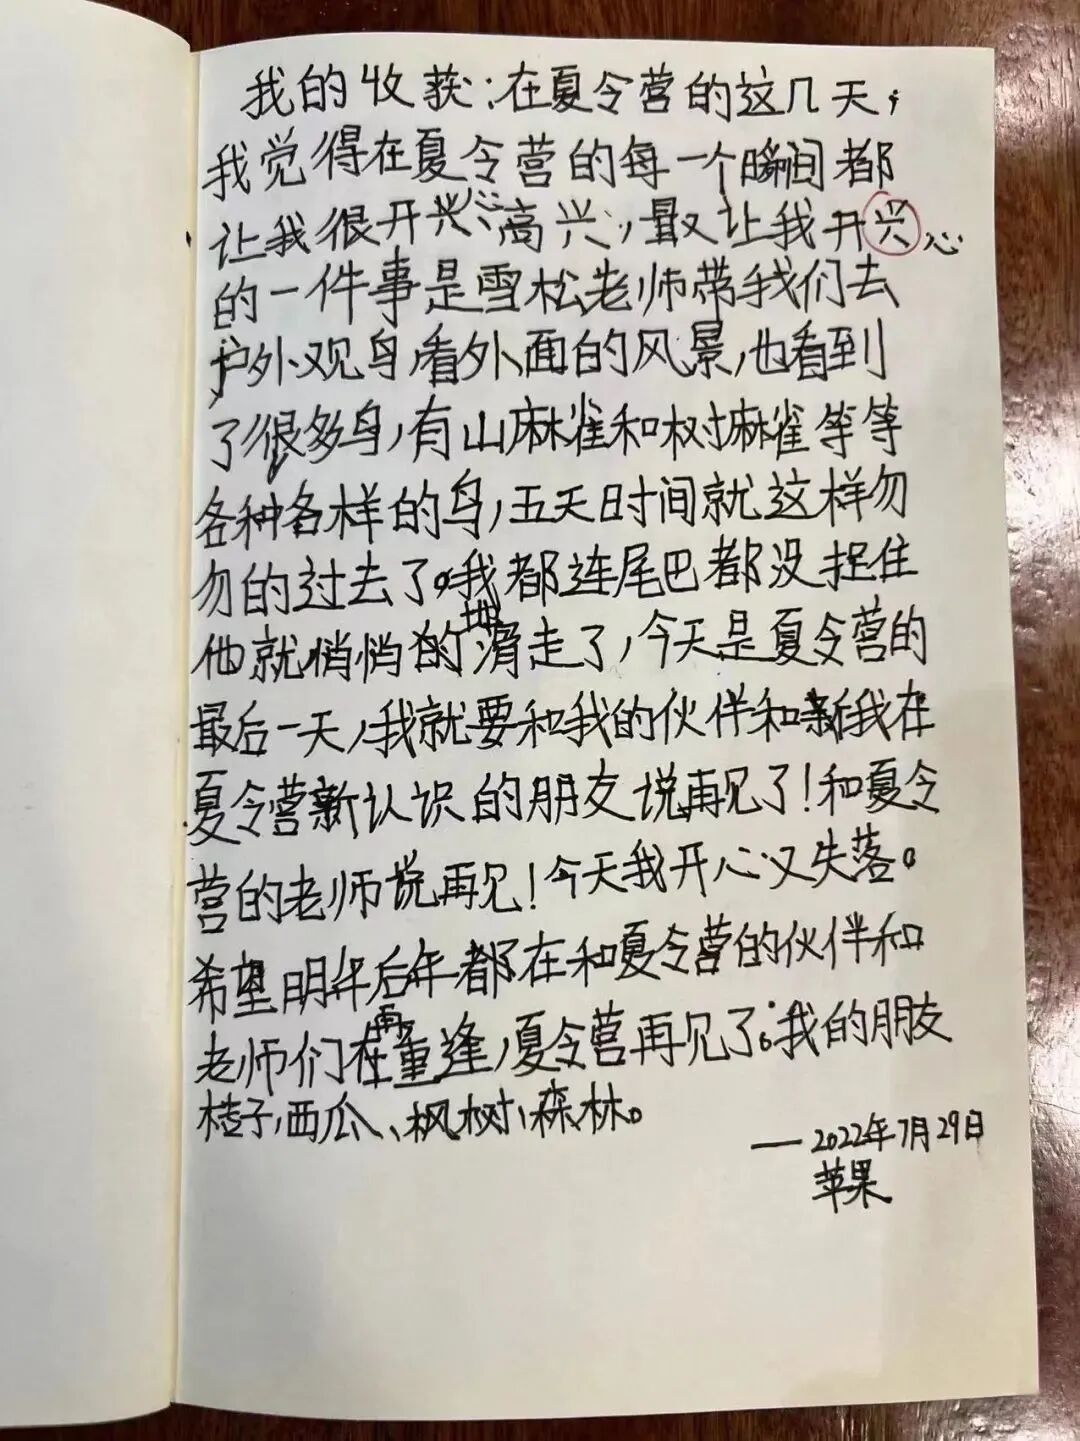 我的收获:在夏令营的这几天,
我觉得在夏令营的每一个瞬间都
让我很开兴心、高兴,最让我开兴心
的一件事是雪松老师带我们去
户外观鸟,看外面的风景,也看到
了很多鸟,有山麻雀和树麻雀等等
各种各样的鸟,五天时间就这样匆
匆的过去了。我都连尾巴都没捉住
他就悄悄的地滑走了,今天是夏令营的
最后一天,我就要和我的伙伴和新我在
夏令营新认识的朋友说再见了!和夏令
营的老师说再见!今天我开心又失落。
希望明年后年都在和夏令营的伙伴和
老师们在再重逢,夏令营再见了。我的朋友
桔子,西瓜、枫树,森林。
——2022年7月29日
苹果